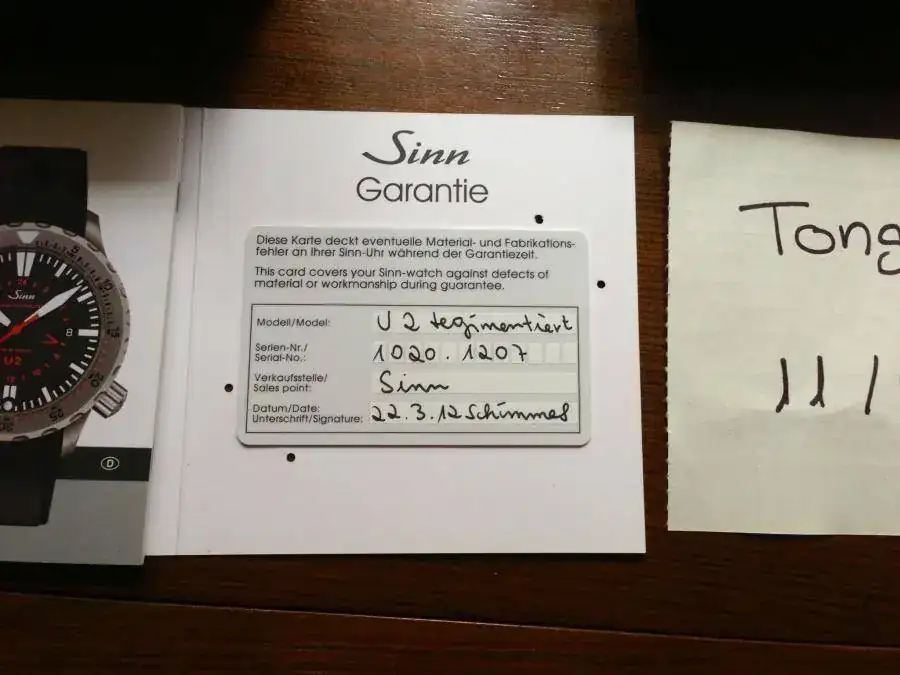 Sinn
Garantie
Diese Karte deckt eventuelle Material- und Fabrikations-
fehler an Ihrer Sinn-Uhr während der Garantiezeit.
This card covers your Sinn-watch against defects of
material or workmanship during guarantee.
Modell/Model: U 2 tegimentiert
Serien-Nr./
Serial-No.: 1020.1207
Verkaufsstelle/
Sales point: Sinn
Datum/Date: 22.3.12 Schimmel
Unterschrift/Signature:
Sinn
U2
D
Tong
11/